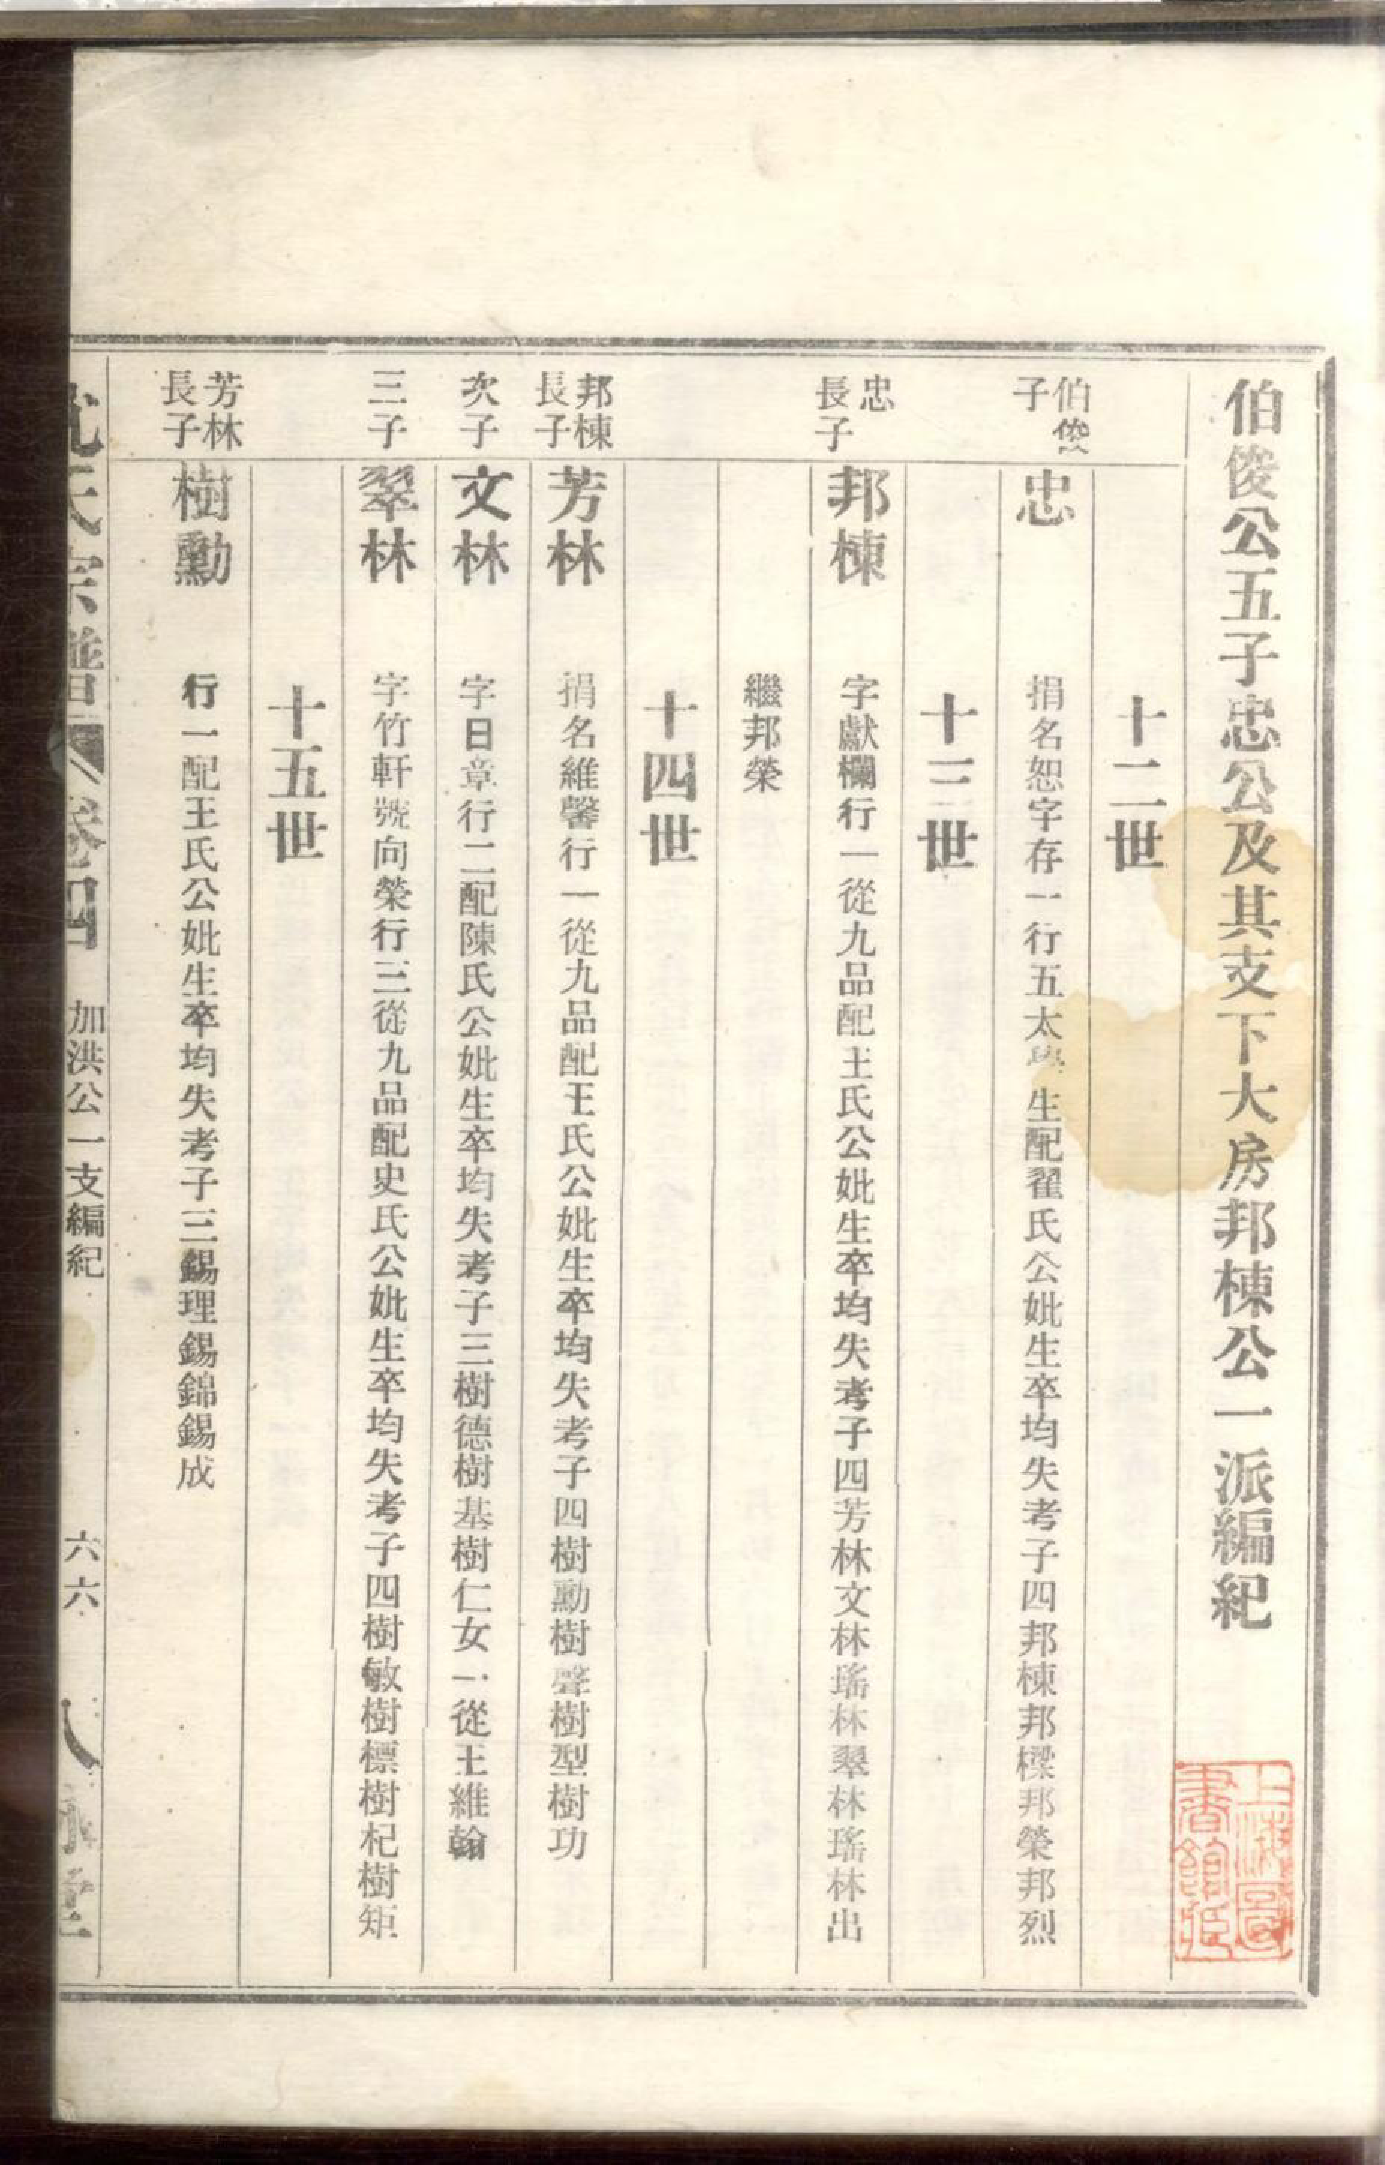 伯俊公五子忠公及其支下大房邦棟公一派編紀
十二世
伯俊子
忠
捐名恕字存一行五太學生配翟氏公妣生卒均失考子四邦棟邦樑邦榮邦烈
十三世
忠長子
邦棟
字獻欄行一從九品配王氏公妣生卒均失考子四芳林文林瑤林翠林瑤林出
繼邦榮
十四世
邦棟長子
芳林
捐名維馨行一從九品配王氏公妣生卒均失考子四樹勳樹聲樹型樹功
次子
文林
字日章行二配陳氏公妣生卒均失考子三樹德樹基樹仁女一從王維翰
三子
翠林
字竹軒號向榮行三從九品配史氏公妣生卒均失考子四樹敏樹標樹杞樹矩
十五世
芳林長子
樹勳
行一配王氏公妣生卒均失考子三錫理錫錦錫成
氏宗譜
卷四
加洪公一支編紀
六六
上海圖書館藏